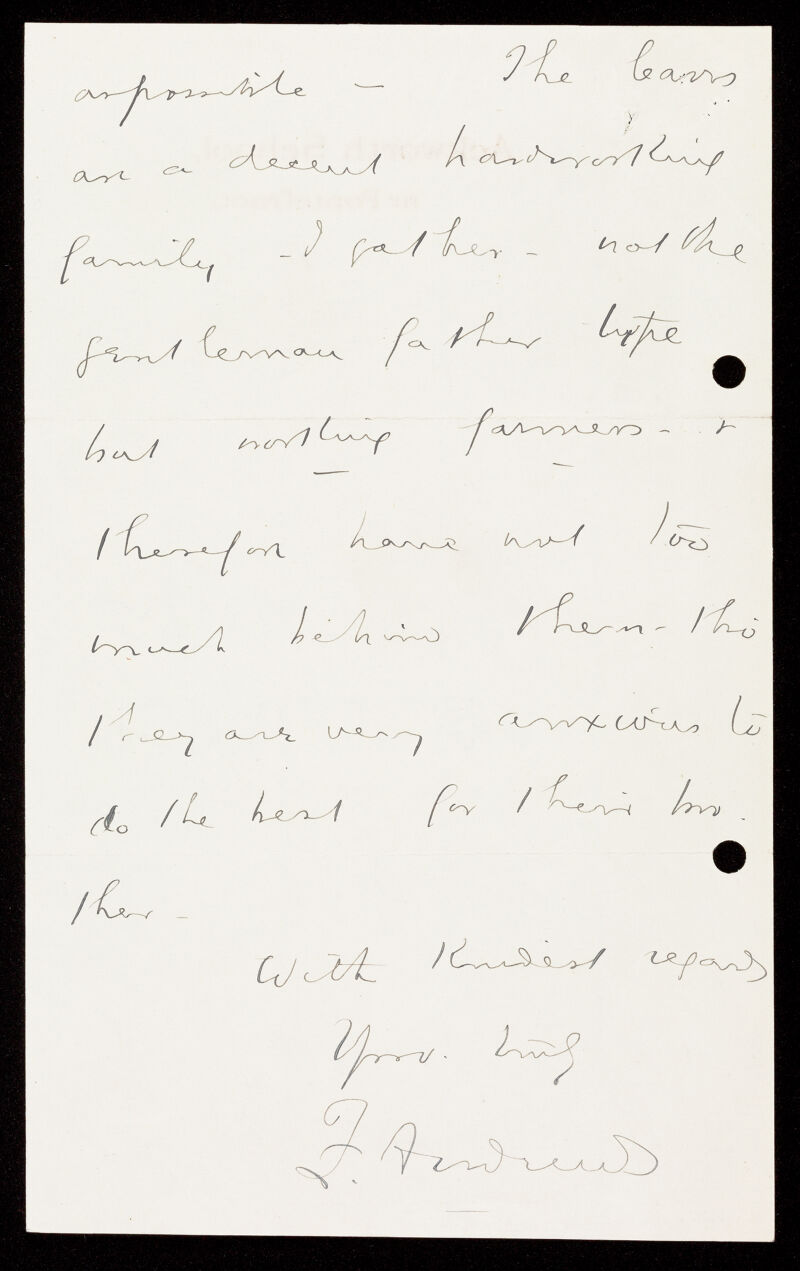 as possible — The
are a decent hardworking
family - I gather - not the
gentleman father type
but working farmers - &
therefore have not too
much behind them - tho'
they are very anxious to
do the best for their bro-
ther -
With Kindest regards
Yrs. truly
F. Andrews